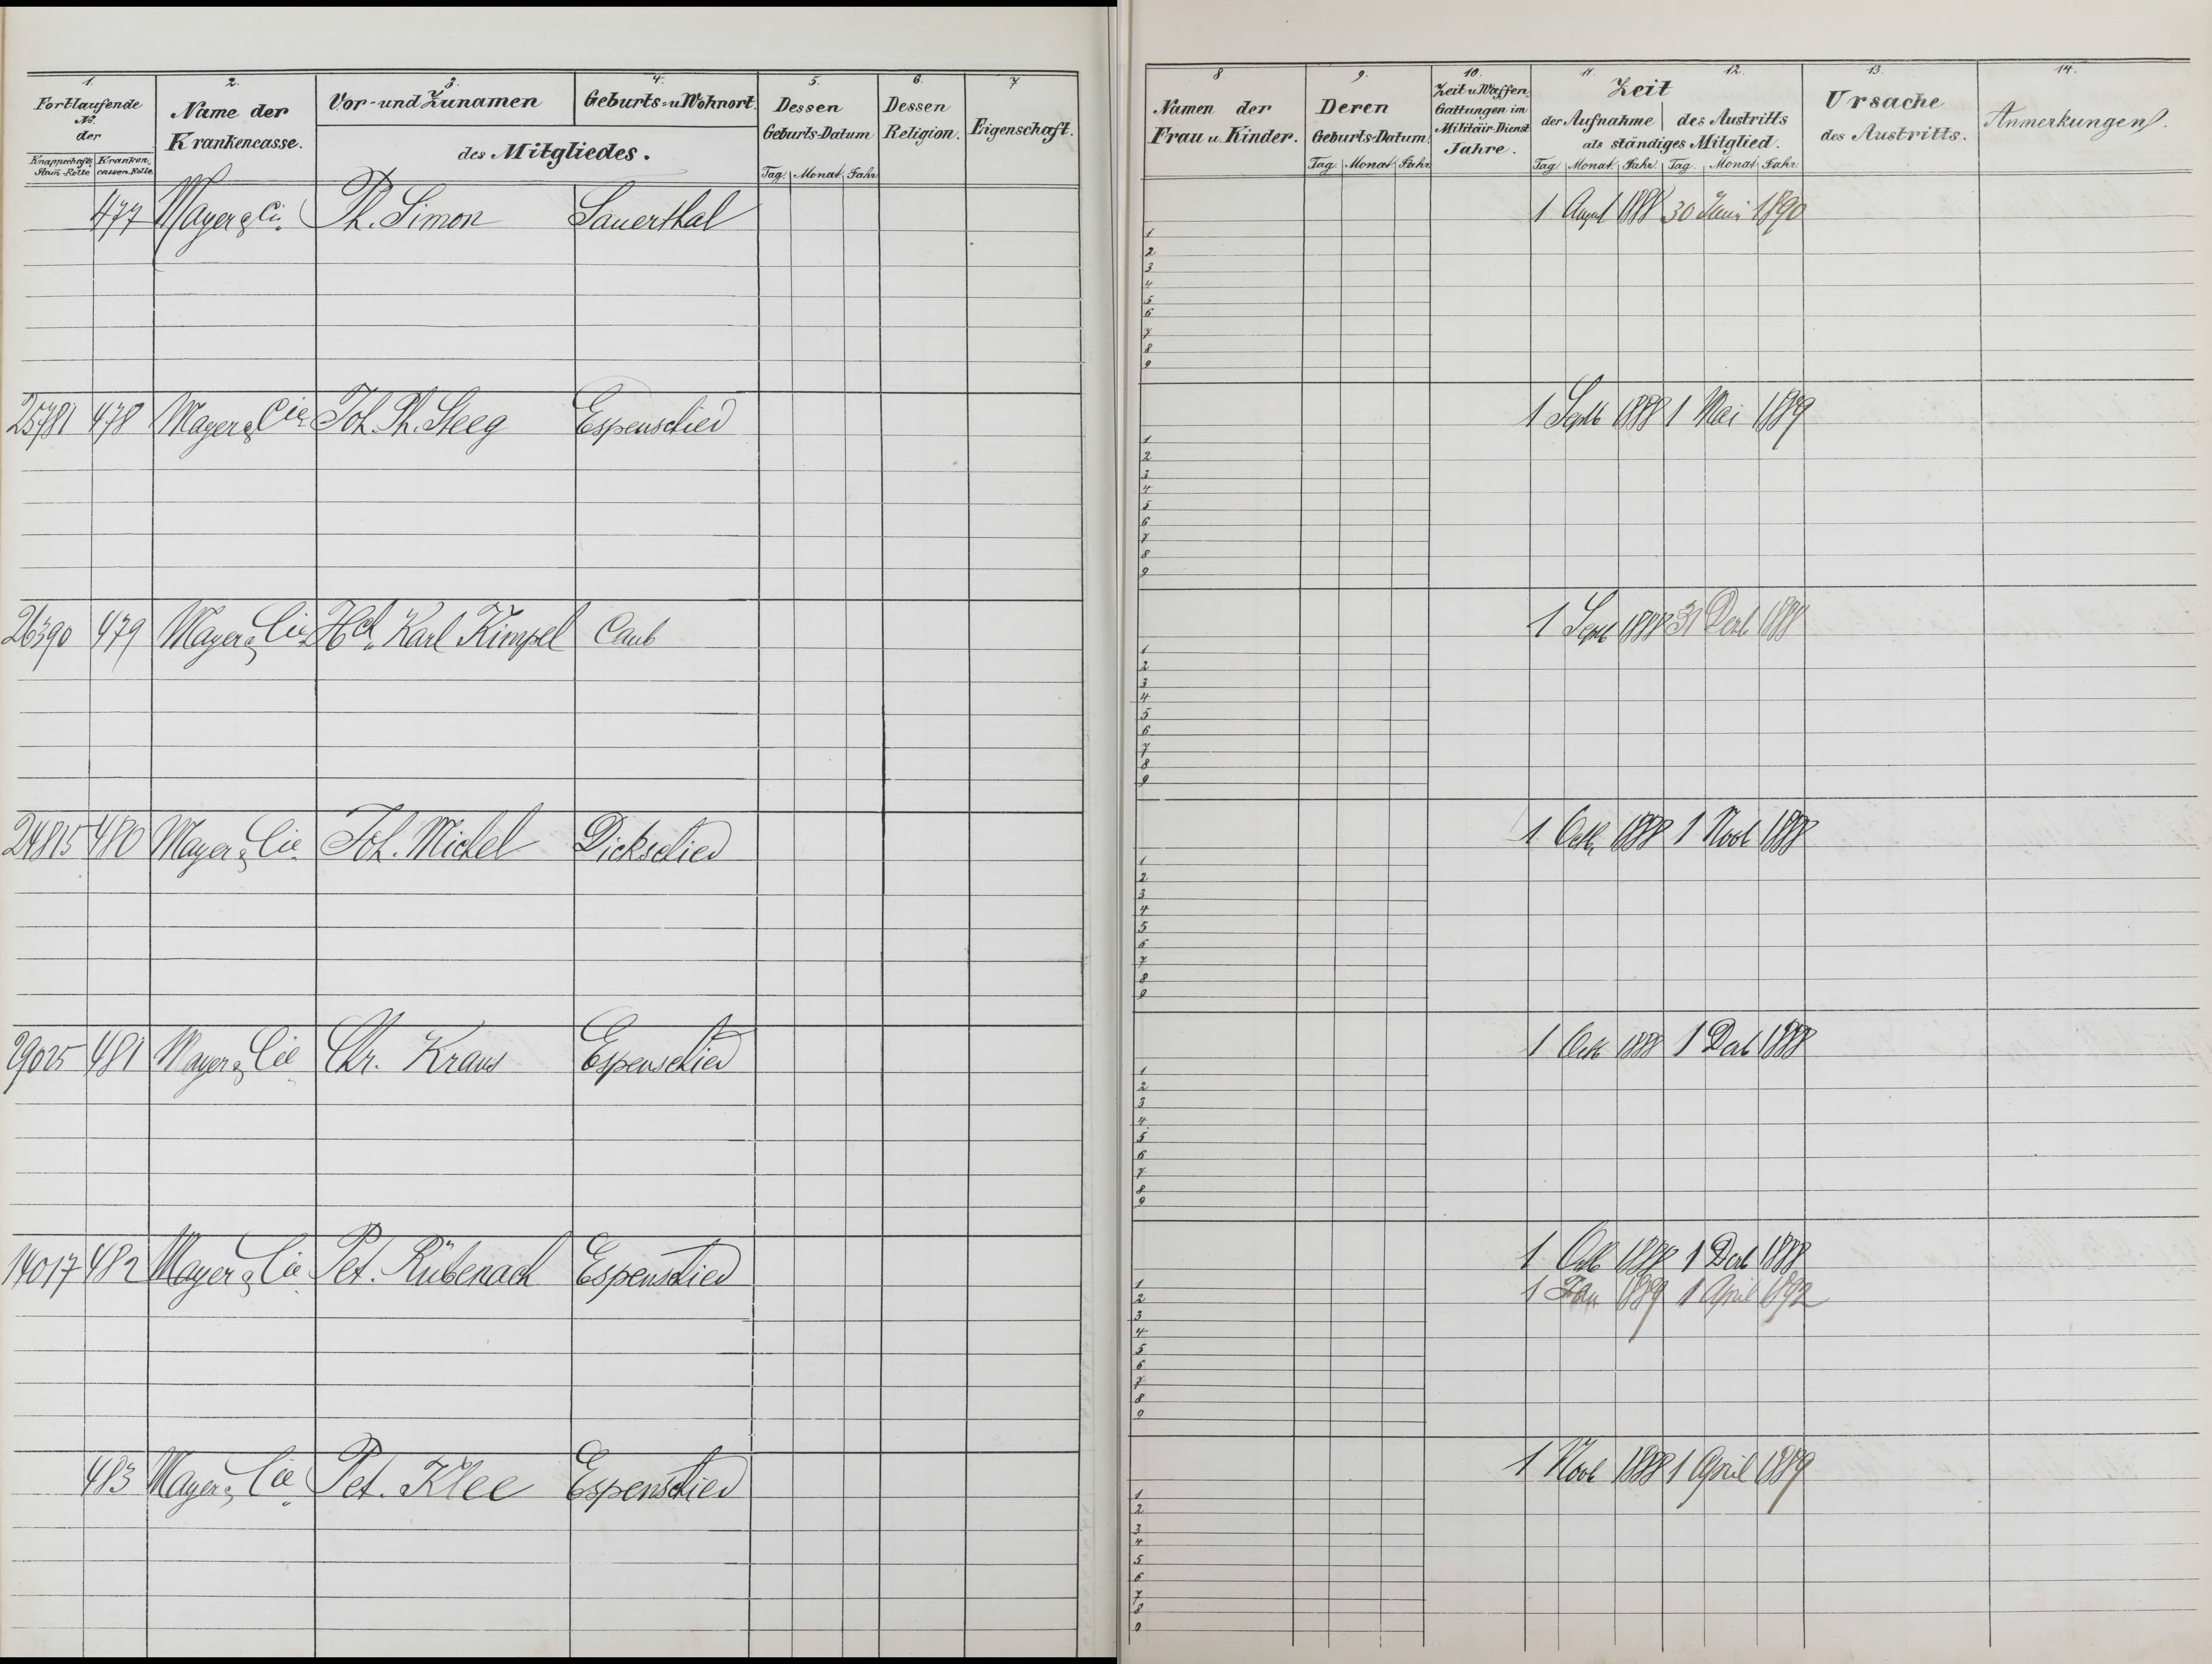 1. 2. 3. 4. 5. 6. 7
Fortlaufende No. der
Knappschafts Stam-Rolle Kranken-cassen-Rolle
Name der Krankencasse.
Vor- und Zunamen Geburts- u. Wohnort.
des Mitgliedes.
Dessen Geburts-Datum
Tag. Monat Jahr.
Dessen Religion.
Eigenschaft.
477 Mayer & Ci. Ph. Simon Sauerthal
25781 478 Mayer & Cie Joh. Ph. Steeg Espenschied
26390 479 Mayer & Cie Hch. Karl Kimpel Caub
24815 480 Mayer & Cie. Joh. Michel Dickschied
29025 481 Mayer & Cie Chr. Kraus Espenschied
14017 482 Mayer & Cie Pet. Rübenach Espenschied
483 Mayer & Cie. Pet. Klee Espenschied
8 9. 10. 11. 12. 13. 14.
Namen der Frau u. Kinder.
Deren Geburts-Datum
Tag Monat Jahr
Zeit u. Waffen-Gattungen im Militair-Dienst Jahre.
Zeit
der Aufnahme des Austritts
als ständiges Mitglied.
Tag Monat Jahr. Tag. Monat Jahr.
Ursache des Austritts.
Anmerkungen.
1 Augst 1888 30 Juni 1890
1
2
3
4
5
6
7
8
9
1 Septb 1888 1 Mai 1889
1
2
3
4
5
6
7
8
9
1 Sept 1888 31 Decb 1888
1
2
3
4
5
6
7
8
9
1 Octb 1888 1 Novb 1888
1
2
3
4
5
6
7
8
9
1 Octb 1888 1 Decb 1888
1
2
3
4
5
6
7
8
9
1 Octb 1888 1 Decb 1888
1 Jan 1889 1 April 1892
1
2
3
4
5
6
7
8
9
1 Novb 1888 1 April 1889
1
2
3
4
5
6
7
8
9